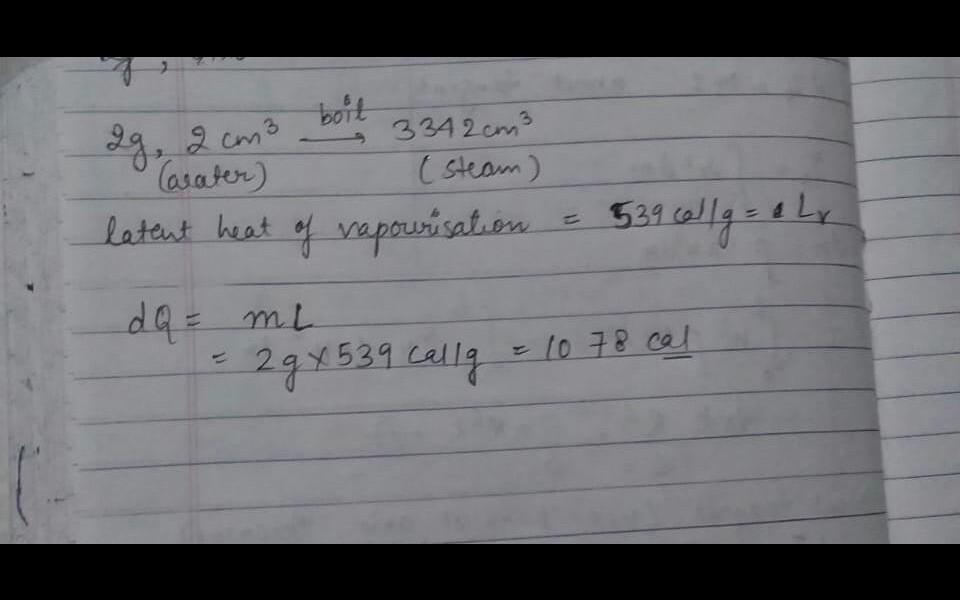 2g, 2 cm³ boil → 3342 cm³
(water) (steam)
latent heat of vapourisation = 539 cal/g = Lv
dQ = mL
= 2g × 539 cal/g = 1078 cal